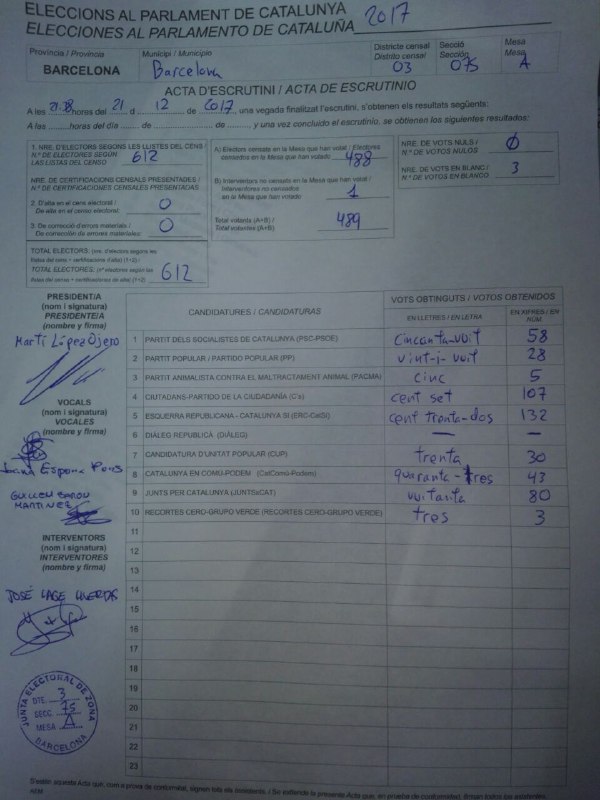 ELECCIONS AL PARLAMENT DE CATALUNYA
ELECCIONES AL PARLAMENTO DE CATALUÑA 2017
Província / Provincia
BARCELONA
Municipi / Municipio
Barcelona
Districte censal
Distrito censal
03
Secció
Sección
075
Mesa
Mesa
A
ACTA D'ESCRUTINI / ACTA DE ESCRUTINIO
A les 21:38 hores del 21 d 12 de 2017, una vegada finalitzat l'escrutini, s'obtenen els resultats següents:
A las hores del día de de y una vez concluido el escrutinio, se obtienen los siguientes resultados:
1. NRE. D'ELECTORS SEGONS LES LLISTES DEL CENS /
N.º DE ELECTORES SEGÚN
LAS LISTAS DEL CENSO
612
NRE. DE CERTIFICACIONS CENSALS PRESENTADES /
N.º DE CERTIFICACIONES CENSALES PRESENTADAS
2. D'alta en el cens electoral /
De alta en el censo electoral:
0
3. De correcció d'errors materials /
De corrección de errores materiales:
0
TOTAL ELECTORS: (nre. d'electors segons les
llistes del cens + certificacions d'alta) (1+2) /
TOTAL ELECTORES: (nº electores según las
listas del censo + certificaciones de alta) (1+2)
612
A) Electors censats en la Mesa que han votat / Electores
censados en la Mesa que han votado
488
B) Interventors no censats en la Mesa que han votat /
Interventores no censados
en la Mesa que han votado
1
Total votants (A+B) /
Total votantes (A+B)
489
NRE. DE VOTS NULS /
N.º DE VOTOS NULOS
0
NRE. DE VOTS EN BLANC /
N.º DE VOTOS EN BLANCO
3
PRESIDENT/A
(nom i signatura)
PRESIDENTE/A
(nombre y firma)
Martí López Ojero
VOCALS
(nom i signatura)
VOCALES
(nombre y firma)
GUILLEM BARON
MARTINEZ
INTERVENTORS
(nom i signatura)
INTERVENTORES
(nombre y firma)
JOSÉ LAGE HUERTAS
JUNTA ELECTORAL DE ZONA
DTE. 3
SECC. 75
MESA A
BARCELONA
CANDIDATURES / CANDIDATURAS
VOTS OBTINGUTS / VOTOS OBTENIDOS
EN LLETRES / EN LETRA
EN XIFRES / EN NÚM
1 PARTIT DELS SOCIALISTES DE CATALUNYA (PSC-PSOE) cincanta-vuit 58
2 PARTIT POPULAR / PARTIDO POPULAR (PP) vint-i-vuit 28
3 PARTIT ANIMALISTA CONTRA EL MALTRACTAMENT ANIMAL (PACMA) cinc 5
4 CIUTADANS-PARTIDO DE LA CIUDADANÍA (C's) cent set 107
5 ESQUERRA REPUBLICANA - CATALUNYA SÍ (ERC-CatSí) cent trenta-dos 132
6 DIÀLEG REPUBLICÀ (DIÀLEG) — —
7 CANDIDATURA D'UNITAT POPULAR (CUP) trenta 30
8 CATALUNYA EN COMÚ-PODEM (CatComú-Podem) quaranta-tres 43
9 JUNTS PER CATALUNYA (JUNTSxCAT) vuitanta 80
10 RECORTES CERO-GRUPO VERDE (RECORTES CERO-GRUPO VERDE) tres 3
11
12
13
14
15
16
17
18
19
20
21
22
23
S'estén aquesta Acta que, com a prova de conformitat, signen tots els assistents. / Se extiende la presente Acta que, en prueba de conformidad, firman todos los asistentes.